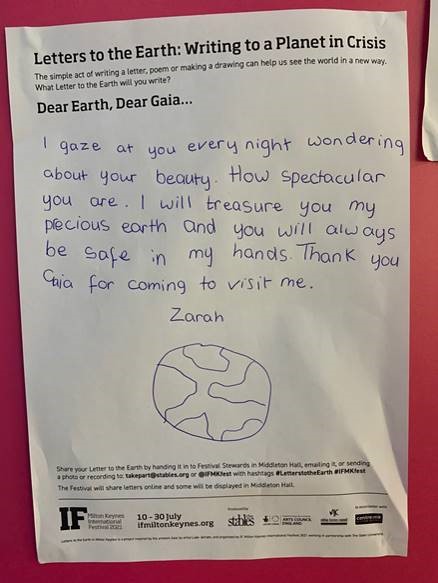 Letters to the Earth: Writing to a Planet in Crisis
The simple act of writing a letter, poem or making a drawing can help us see the world in a new way.
What Letter to the Earth will you write?
Dear Earth, Dear Gaia...
I gaze at you every night wondering
about your beauty. How spectacular
you are. I will treasure you my
precious earth and you will always
be safe in my hands. Thank you
Gaia for coming to visit me.
Zarah
Share your Letter to the Earth by handing it in to Festival Stewards in Middleton Hall, emailing it, or sending
a photo or recording to: takepart@stables.org or @IFMKfest with hashtags #LetterstotheEarth #IFMKfest
The Festival will share letters online and some will be displayed in Middleton Hall.
IF
Milton Keynes
International
Festival 2021
10 - 30 July
ifmiltonkeynes.org
stables
ARTS COUNCIL
ENGLAND
centre:mk